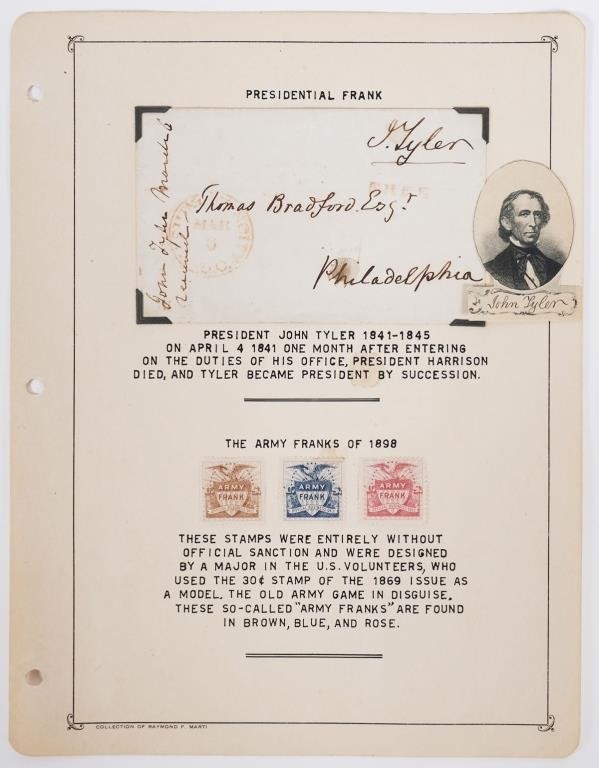 PRESIDENTIAL FRANK
J. Tyler
FREE
Thomas Bradford Esqr
Philadelphia
John Tyler March 6
MAR
John Tyler
PRESIDENT JOHN TYLER 1841-1845
ON APRIL 4 1841 ONE MONTH AFTER ENTERING
ON THE DUTIES OF HIS OFFICE, PRESIDENT HARRISON
DIED, AND TYLER BECAME PRESIDENT BY SUCCESSION.
THE ARMY FRANKS OF 1898
ARMY FRANK
ARMY FRANK
ARMY FRANK
THESE STAMPS WERE ENTIRELY WITHOUT
OFFICIAL SANCTION AND WERE DESIGNED
BY A MAJOR IN THE U.S. VOLUNTEERS, WHO
USED THE 30¢ STAMP OF THE 1869 ISSUE AS
A MODEL. THE OLD ARMY GAME IN DISGUISE.
THESE SO-CALLED "ARMY FRANKS" ARE FOUND
IN BROWN, BLUE, AND ROSE.
COLLECTION OF RAYMOND F. MARTI